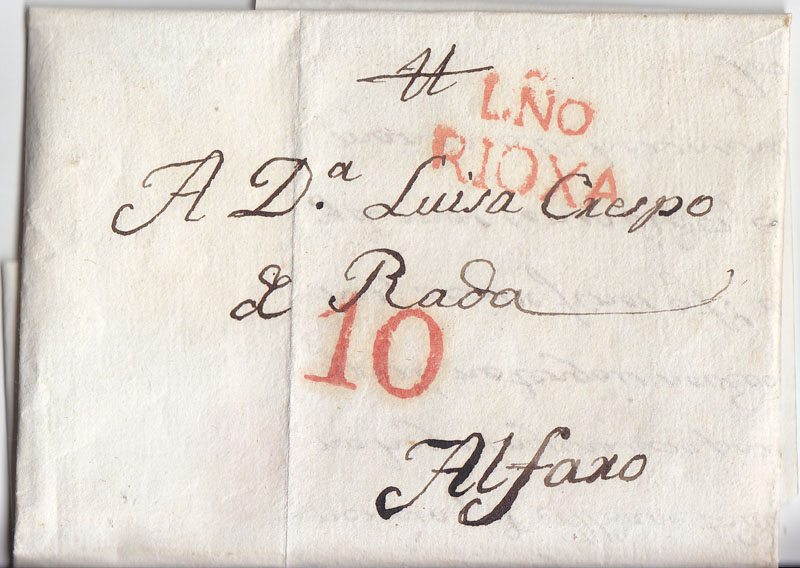 LÑO
RIOXA
A D.ª Luisa Crespo
de Rada
10
Alfaro